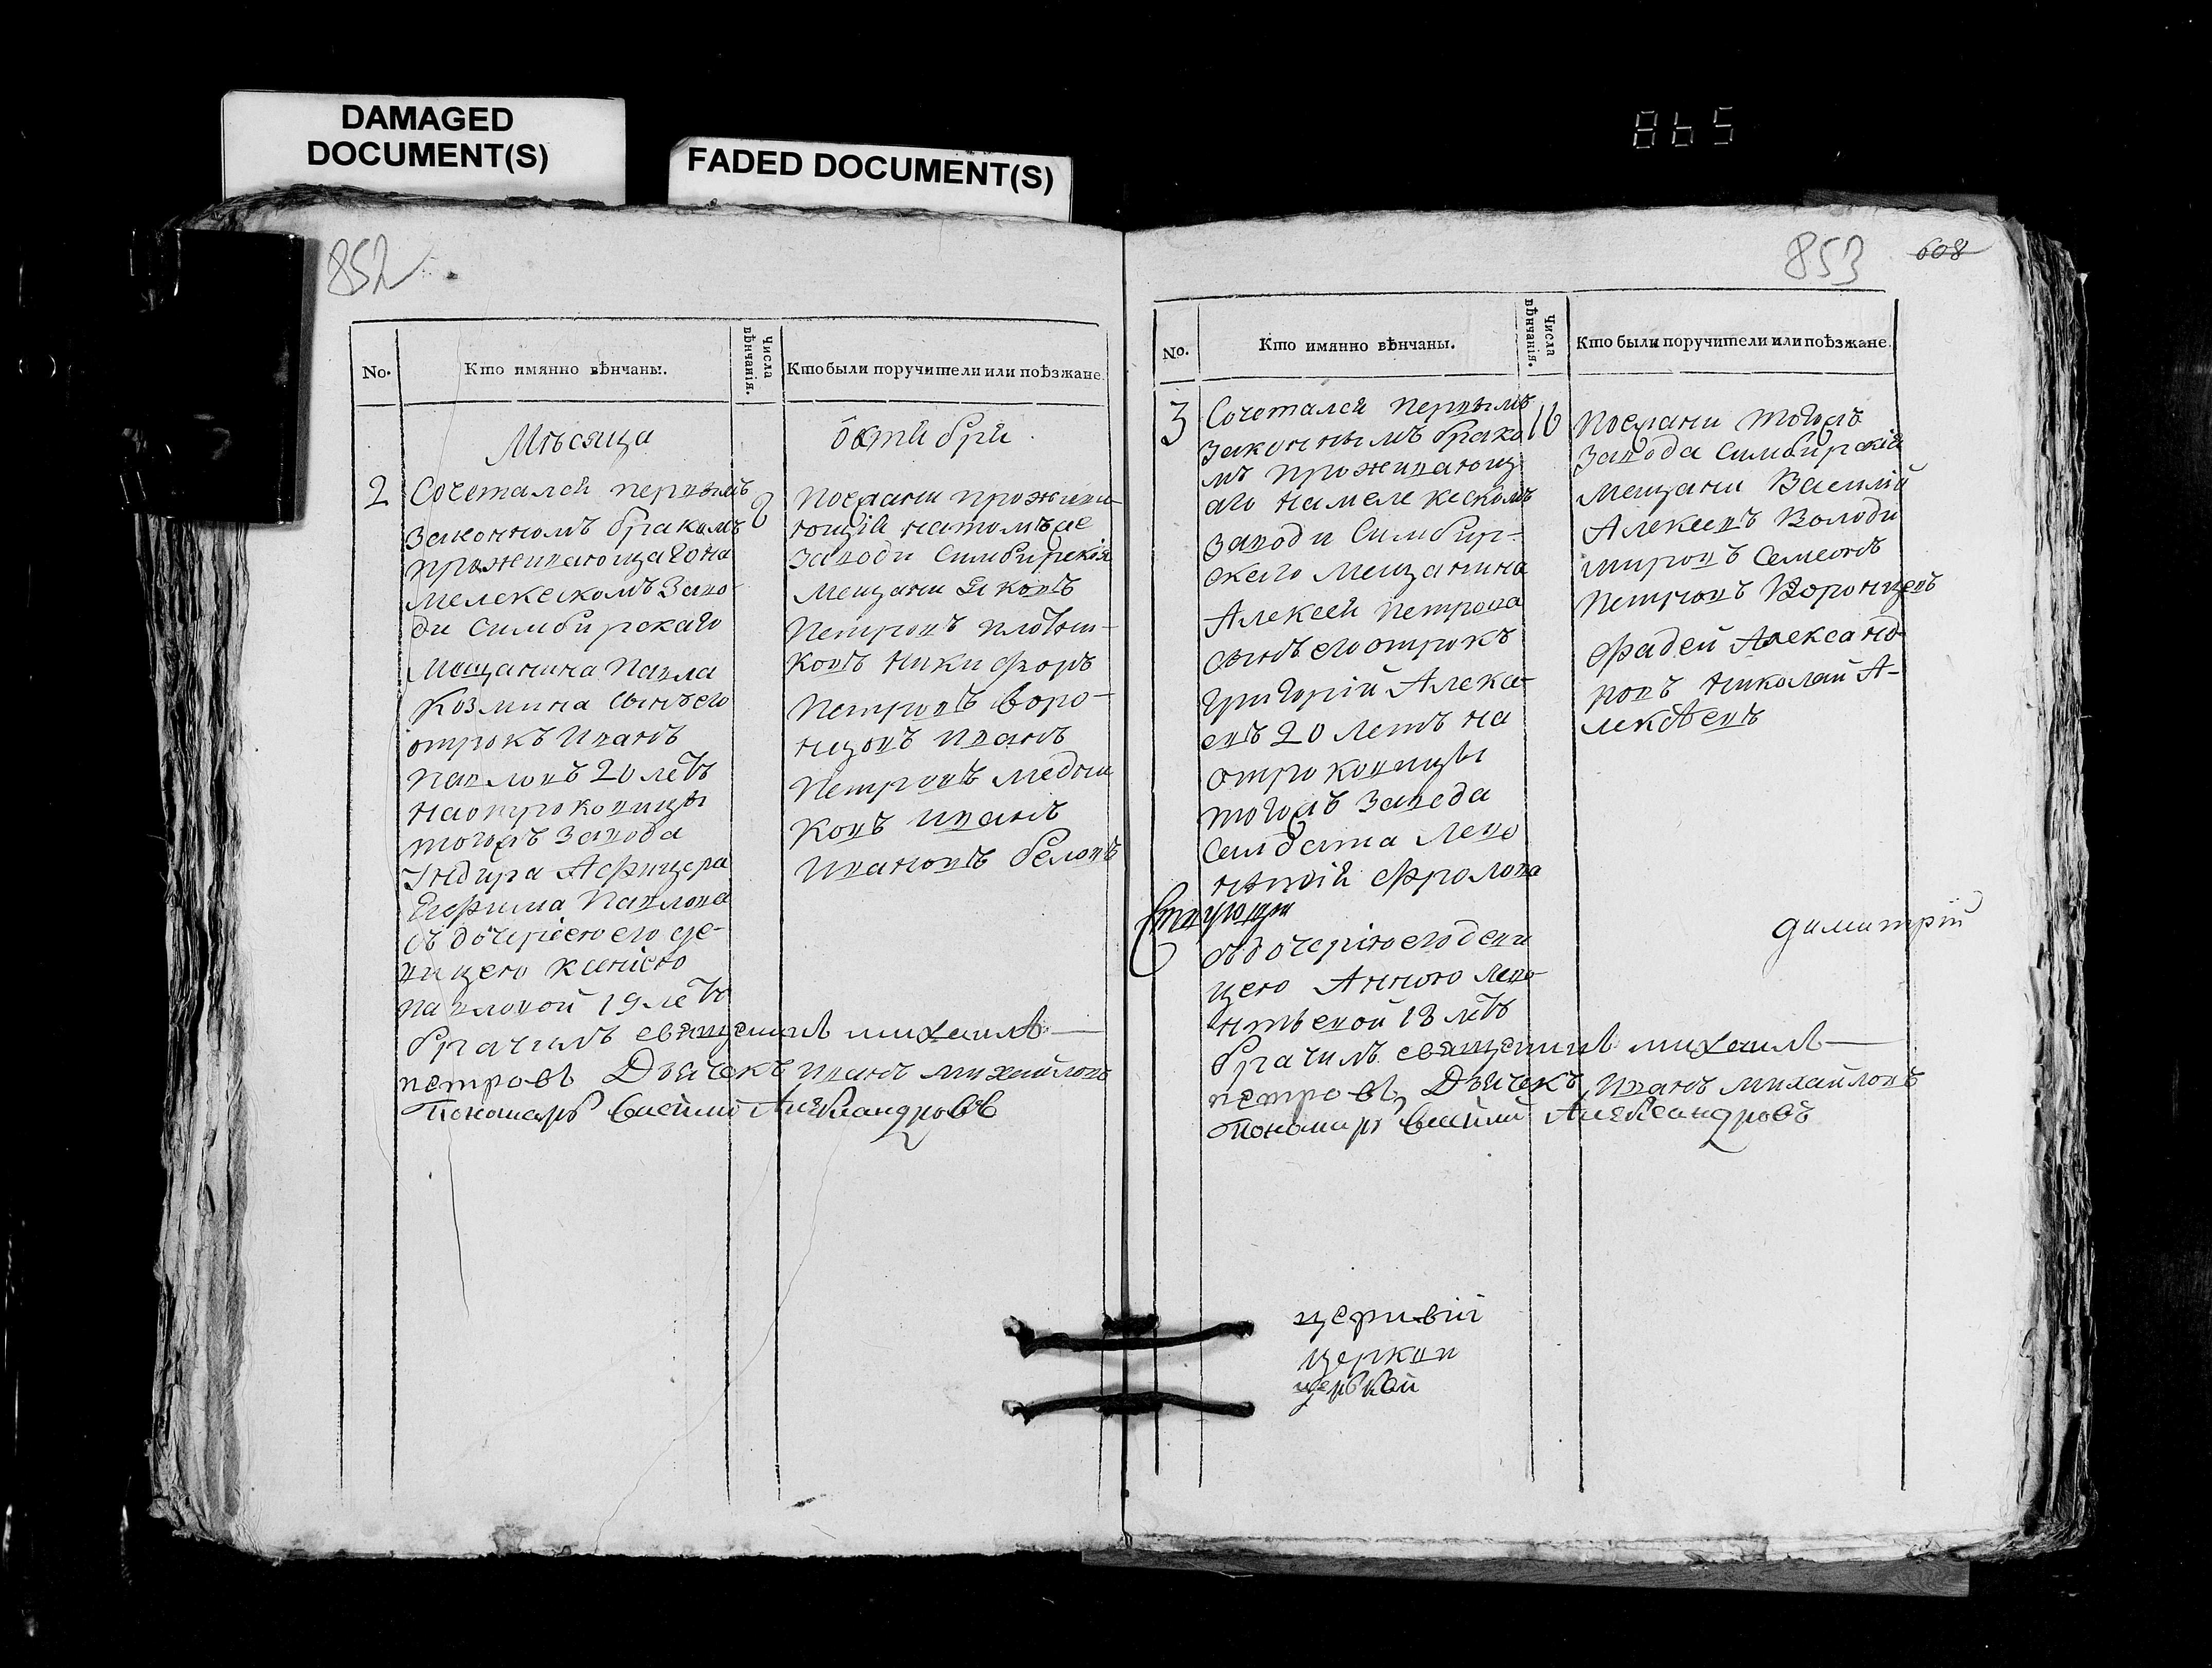 DAMAGED
DOCUMENT(S)
FADED DOCUMENT(S)
865
852
No.
Кто имянно вѣнчаны.
Числа
вѣнчанія.
Кто были поручители или поѣзжане.
Мѣсяца
октября
2
Сочетался первымъ
законномъ бракомъ
проживающаго на
мелекескомъ заво-
ди симбирскаго
мещанина павла
Козмина сынъ его
отрокъ иванъ
павловъ 20 летъ
на отроковицы
тогожъ завода
Ундира Афицера
Ефима павлова
съ дочерiею его де-
вицею ксенiею
павловой 19 летъ
8
поезжани прожива-
ющiй натомъже
заводи симбирскiя
мещани Яковъ
петровъ плотни-
ковъ никифоръ
петровъ воро-
нцовъ иванъ
петровъ медни
ковъ иванъ
ивановъ беловъ
брачилъ священникъ михаилъ
петровъ Дьячекъ иванъ михайловъ
Пономарь Василий Александровъ
853
608
No.
Кто имянно вѣнчаны.
Числа
вѣнчанія.
Кто были поручители или поѣзжане.
3
Сочетался первымъ
законнымъ брако
мъ проживающ
аго на мелекескомъ
заводи Симбир-
скаго мещанина
Алексей петрова
сынъ его отрокъ
григорiй Алекс-
евъ 20 летъ на
отроковицы
тогожъ завода
салдата Лево
нтiй фролова
съ дочерiю его деви
цею Анною лево-
нтьевой 18 летъ
16
поезжани тогожъ
завода симбирскiй
мещани Василий
Алексевъ Володи
мировъ семенъ
петровъ Воронцовъ
фадей Александ-
ровъ николай А-
лексѣевъ
димитрiй
брачилъ священникъ михаилъ
петровъ, Дьячекъ иванъ михайловъ
Пономарь Василий Александровъ
церкви
церквй